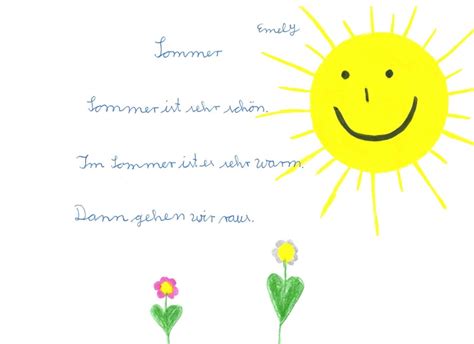 Emely
Sommer
Sommer ist sehr schön.
Im Sommer ist es sehr warm.
Dann gehen wir raus.